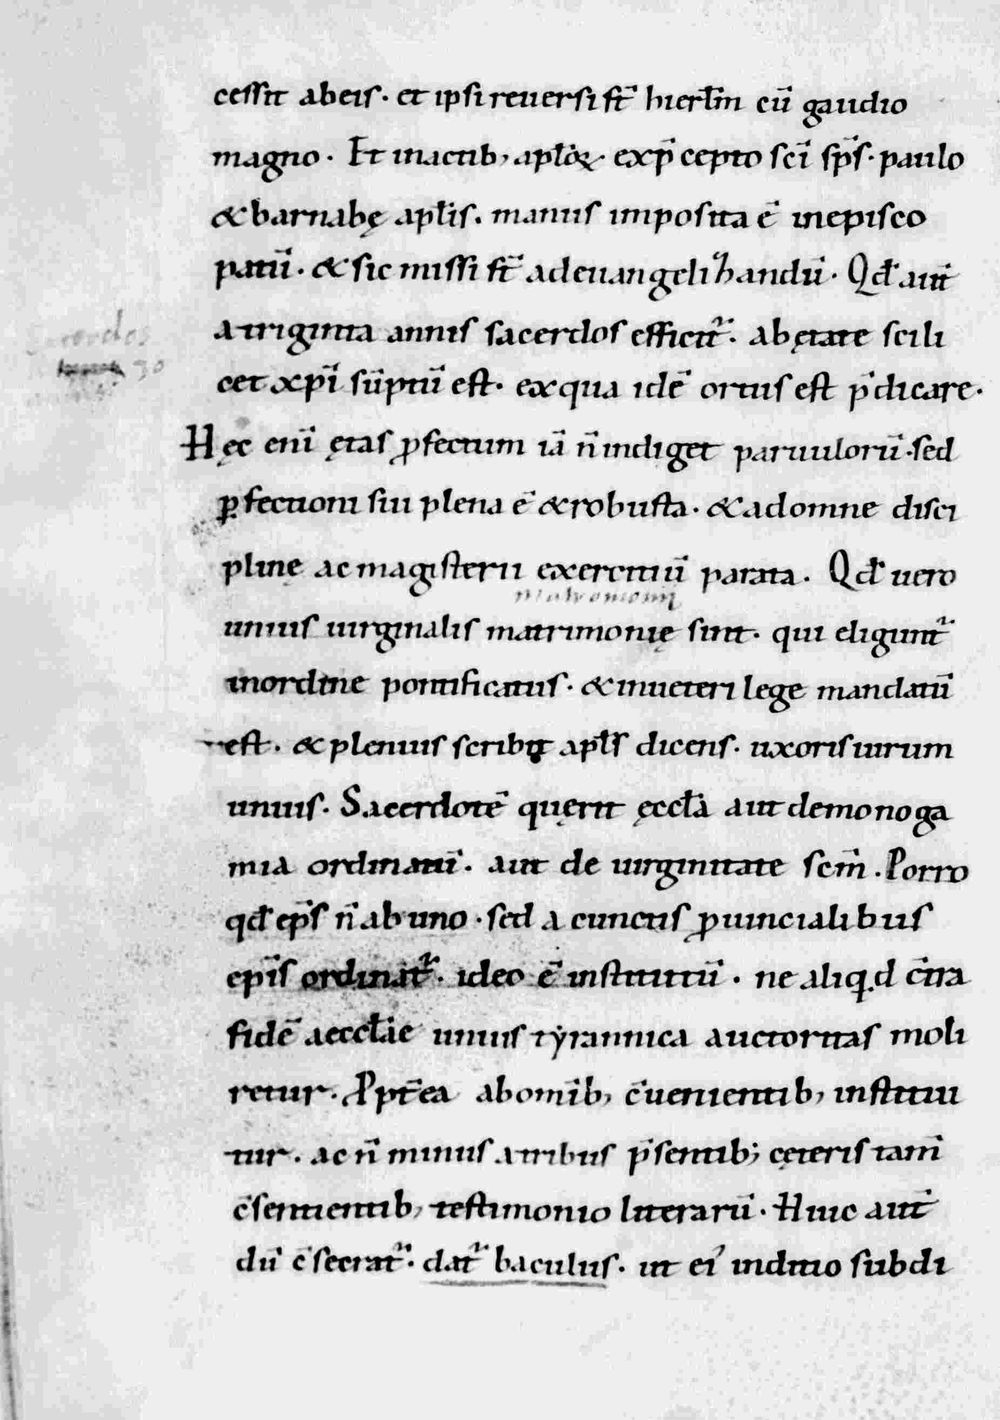 cessit abeis· et ipsi reuersi st̄ hierl̄m cū gaudio
magno· Et inactib; apl̄oꝝ· exp̄cepto sc̄i sp̄s· paulo
& barnabę apl̄is. manus imposita ē inepisco
patū· & sic missi st̄ adeuangelizandū· Qd̄ aut̄
atriginta annis sacerdos efficit᷑. abętate scili
cet xp̄i sūptū est· exqua idē ortus est p̄dicare·
Sacerdos
30
Hęc enī ętas ꝓfectum iā n̄ indiget paruulorū· sed
ꝑfectioni sui plena ē & robusta· & adomne disci
plinę ac magisterii exercitiū parata· Qd̄ uero
matrimonij
unius uirginalis matrimonię sint· qui eligunt᷑
inordine pontificatus· & inueteri lege mandatū
est· & plenius scribit apl̄s dicens· uxoris uirum
unius· Sacerdotē querit ęccl̄a aut demonoga
mia ordinatū· aut de uirginitate sc̄m. Porro
qd̄ ep̄s n̄ ab uno· sed a cunctis ꝓuincialibus
ep̄is ordinat᷑· ideo ē institutū· ne aliq̣d c̄tra
fidē aeccl̄ae unius tẏrannica auctoritas moli
retur· Ꝓpt̄ea abom̄ib; c̄uenientib; institui
tur· ac n̄ minus atribus p̄sentib; cęteris tam̄
c̄sentientib; testimonio literarū· Huic aut̄
dū c̄secrat᷑· dat᷑ baculus· ut ei᷒ inditio subdi